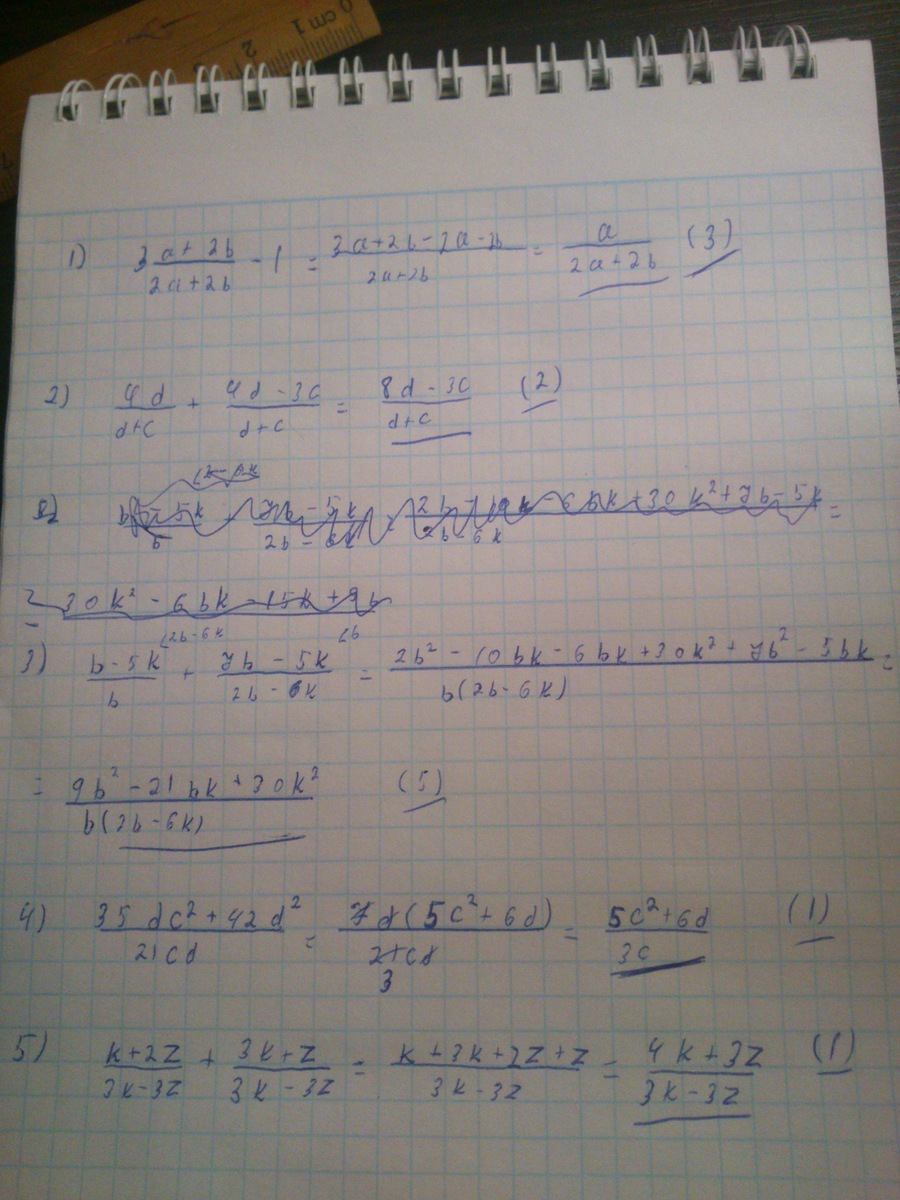 0 cm 1 2
7
1) (3a+2b)/(2a+2b) - 1 = (3a+2b-2a-2b)/(2a+2b) = a/(2a+2b) (3)
2) 4d/(d+c) + (4d-3c)/(d+c) = (8d-3c)/(d+c) (2)
= 30k² - 6bk - 15k + 9b
3) (b-5k)/b + (7b-5k)/(2b-6k) = (2b² - 10bk - 6bk + 30k² + 7b² - 5bk)/(b(2b-6k)) =
= (9b² - 21bk + 30k²)/(b(2b-6k)) (5)
4) (35dc² + 42d²)/(21cd) = (7d(5c² + 6d))/(21cd) 3 = (5c² + 6d)/(3c) (1)
5) (k+2z)/(3k-3z) + (3k+z)/(3k-3z) = (k+3k+2z+z)/(3k-3z) = (4k+3z)/(3k-3z) (1)